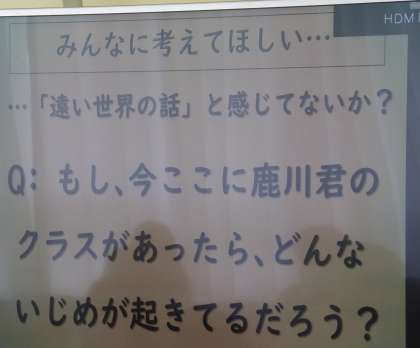 HDMI
みんなに考えてほしい…
…「遠い世界の話」と感じてないか？
Q：もし、今ここに鹿川君の
クラスがあったら、どんな
いじめが起きてるだろう？